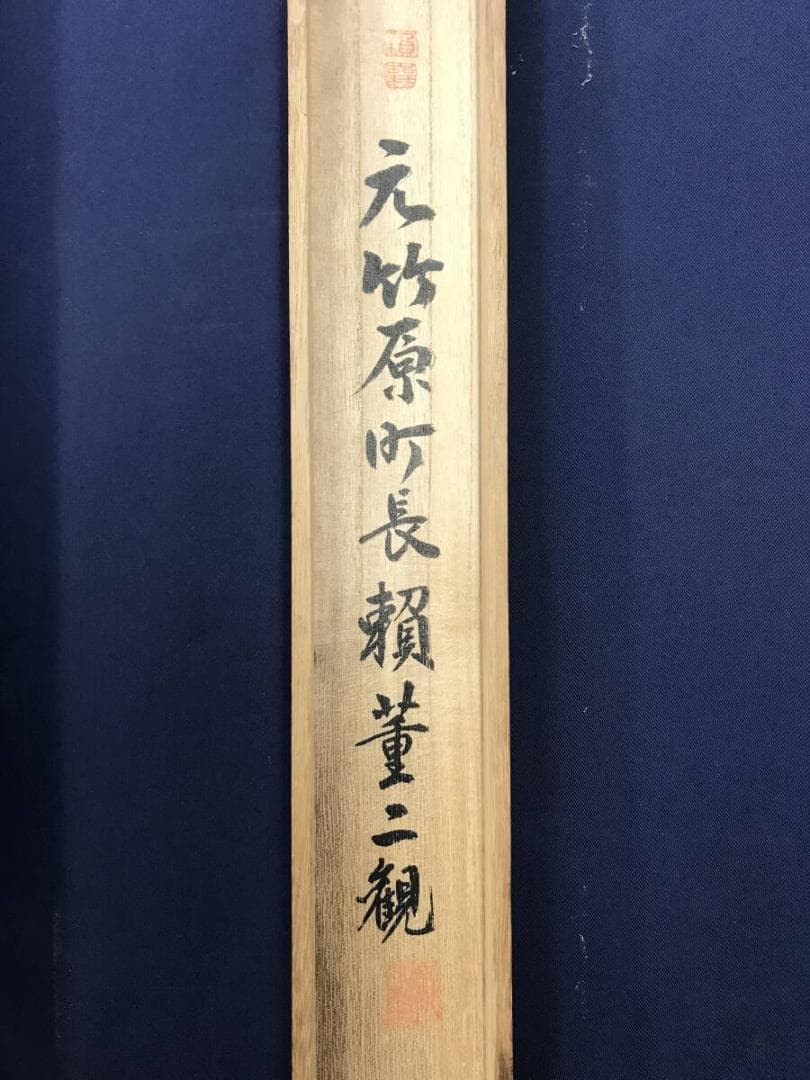 元竹原町長賴董二観